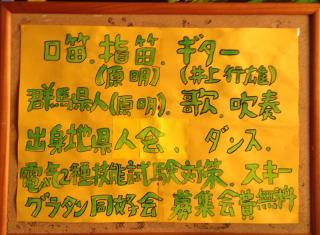 口笛、指笛、ギター
(原明) (井上行雄)
群馬県人(原明)、歌、吹奏
出身地県人会、ダンス、
電気2種技能試験対策、スキー
グラタン同好会 募集会費無料